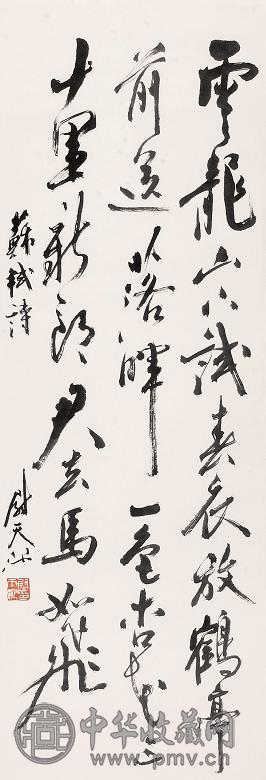 雲龍山下試春衣放鶴亭
前送落暉一色杏花三
十里新郎君去馬如飛
蘇軾詩
尉天池
中华收藏网
www.pmv.cn